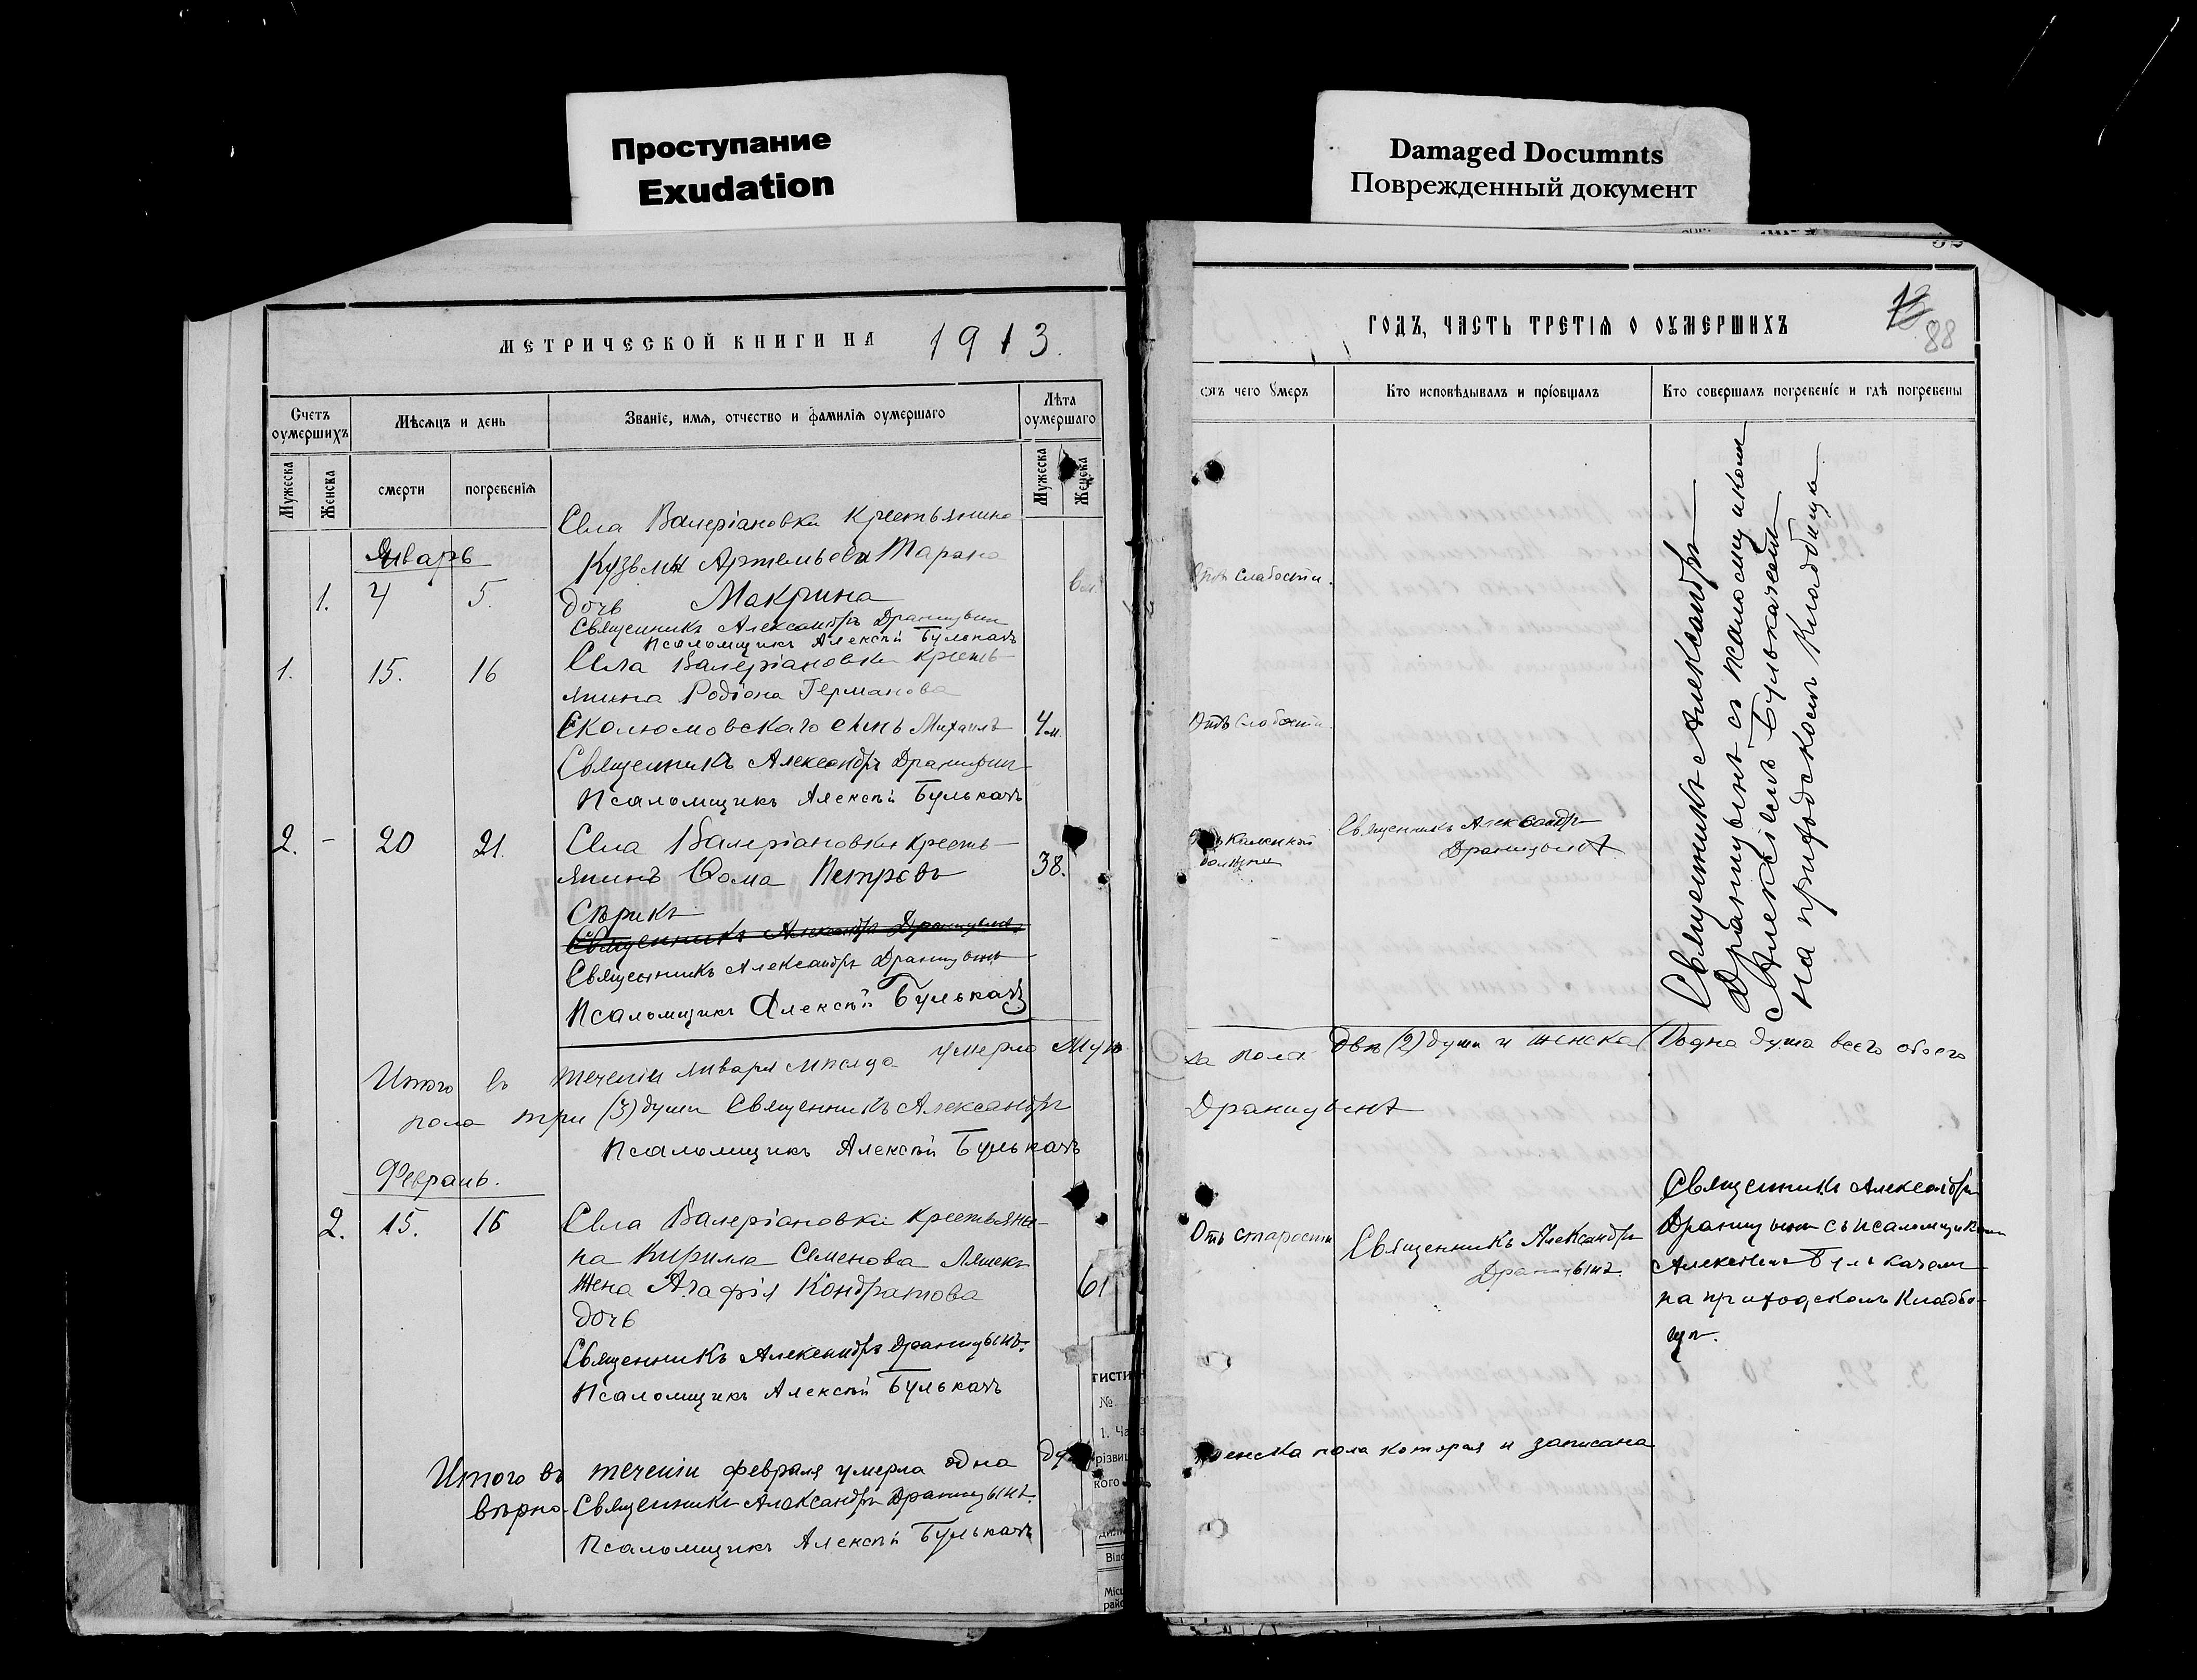 Проступание
Exudation
Damaged Documnts
Поврежденный документ
МЕТРИЧЕСКОЙ КНИГИ НА 1913.
Счетъ оумершихъ
Мѣсяцъ и день
Званіе, имя, отчество и фамилія оумершаго
Лѣта оумершаго
Мужеска
Женска
смерти
погребенія
Мужеска
Женска
Январь
Села Валеріановки крестьянина
Кузьмы Артемьева Тарана
1. 4 5. дочь Макрина
Священникъ Александръ Драницынъ
Псаломщикъ Алексѣй Булькачъ
1. 15. 16 Села Валеріановки кресть-
янина Родіона Германова
Сколюмовскаго сынъ Михаилъ 4 м.
Священникъ Александръ Драницынъ
Псаломщикъ Алексѣй Булькачъ
2. - 20 21. Села Валеріановки кресть-
янинъ Ѳома Петровъ 38.
Сѣрикъ
Священникъ Александръ Драницынъ
Священникъ Александръ Драницынъ
Псаломщикъ Алексѣй Булькачъ
Итого въ теченіи января мѣсяца умерло муж
пола три (3) души Священникъ Александръ
Псаломщикъ Алексѣй Булькачъ
Февраль.
2. 15. 16 Села Валеріановки крестьяни-
на Кирилла Семенова
жена Агафія Кондратова 61
дочь
Священникъ Александръ Драницынъ
Псаломщикъ Алексѣй Булькачъ
Итого въ теченіи февраля умерла одна
вѣрно Священникъ Александръ Драницынъ.
Псаломщикъ Алексѣй Булькачъ
ГОДЪ, ЧАСТЬ ТРЕТІЯ О ОУМЕРШИХЪ
88
отъ чего умеръ
Кто исповѣдывалъ и пріобщалъ
Кто совершалъ погребеніе и гдѣ погребены
Отъ слабости.
Отъ слабости.
Священникъ Александръ
Драницынъ
болѣзни
Священникъ Александръ
Драницынъ съ псаломщикомъ
Алексѣемъ Булькачемъ
на приходскомъ кладбищѣ
ка пола двѣ (2) души и женска (1) одна душа всего обоего
Драницынъ
Отъ старости
Священникъ Александръ
Драницынъ.
Священникъ Александръ
Драницынъ съ псаломщикомъ
Алексѣемъ Булькачемъ
на приходскомъ кладби-
щѣ.
женска пола которая и записана